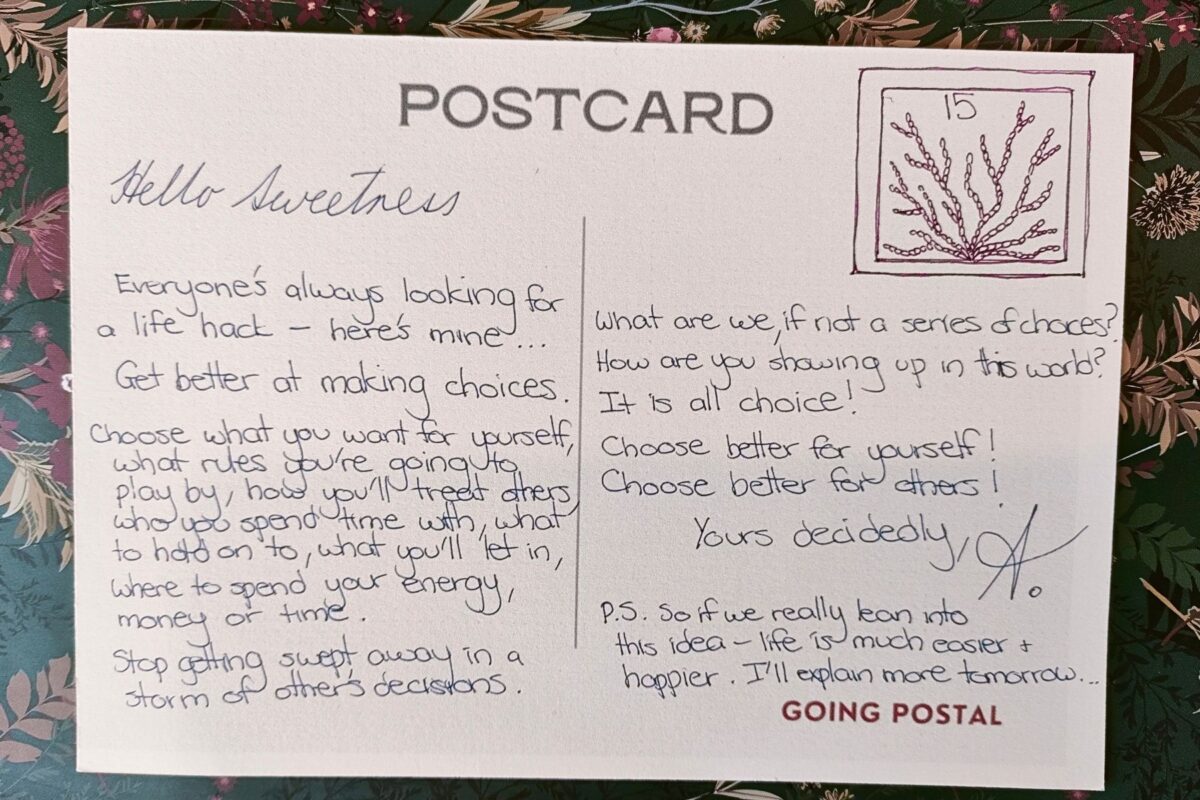 POSTCARD
15
Hello Sweetness
Everyone's always looking for
a life hack – here's mine...
Get better at making choices.
Choose what you want for yourself,
what rules you're going to
play by, how you'll treat others
who you spend time with, what
to hold on to, what you'll let in,
where to spend your energy,
money or time.
Stop getting swept away in a
storm of other's decisions.
What are we, if not a series of choices?
How are you showing up in this world?
It is all choice!
Choose better for yourself!
Choose better for others!
Yours decidedly, A.
P.S. So if we really lean into
this idea – life is much easier +
happier. I'll explain more tomorrow...
GOING POSTAL